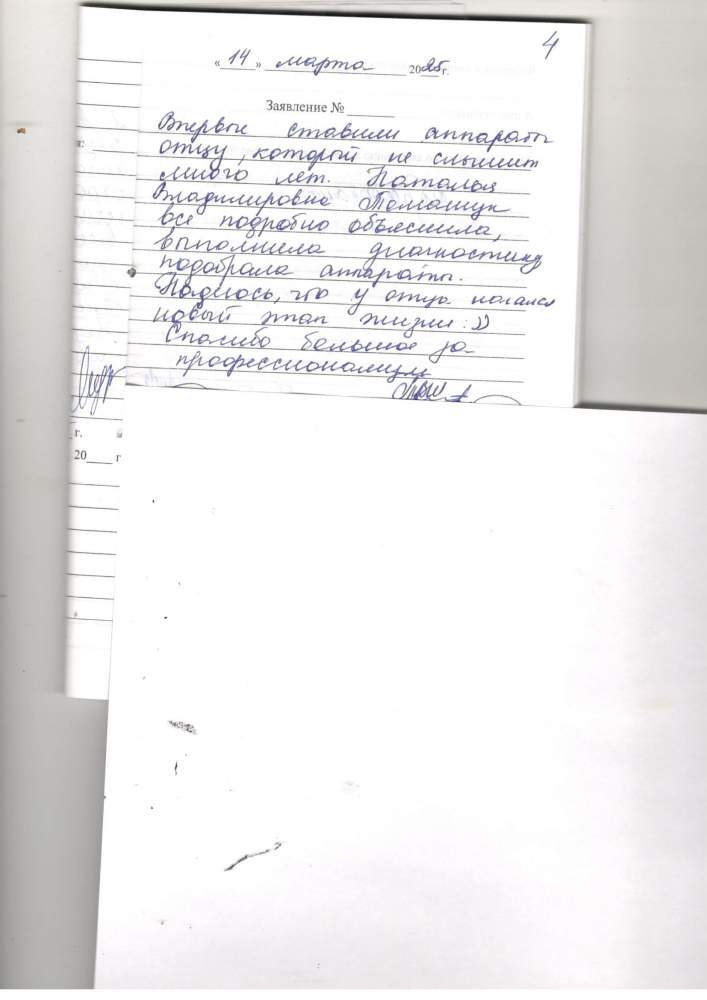 4
« 14 » марта 2025г.
Заявление №
Впервые ставили аппараты
отцу, который не слышит
много лет. Наталья
Владимировна Томащук
все подробно объяснила,
выполнила диагностику
подобрала аппараты.
Надеюсь, что у отца начался
новый этап жизни :))
Спасибо большое за
профессионализм
г.
20 г